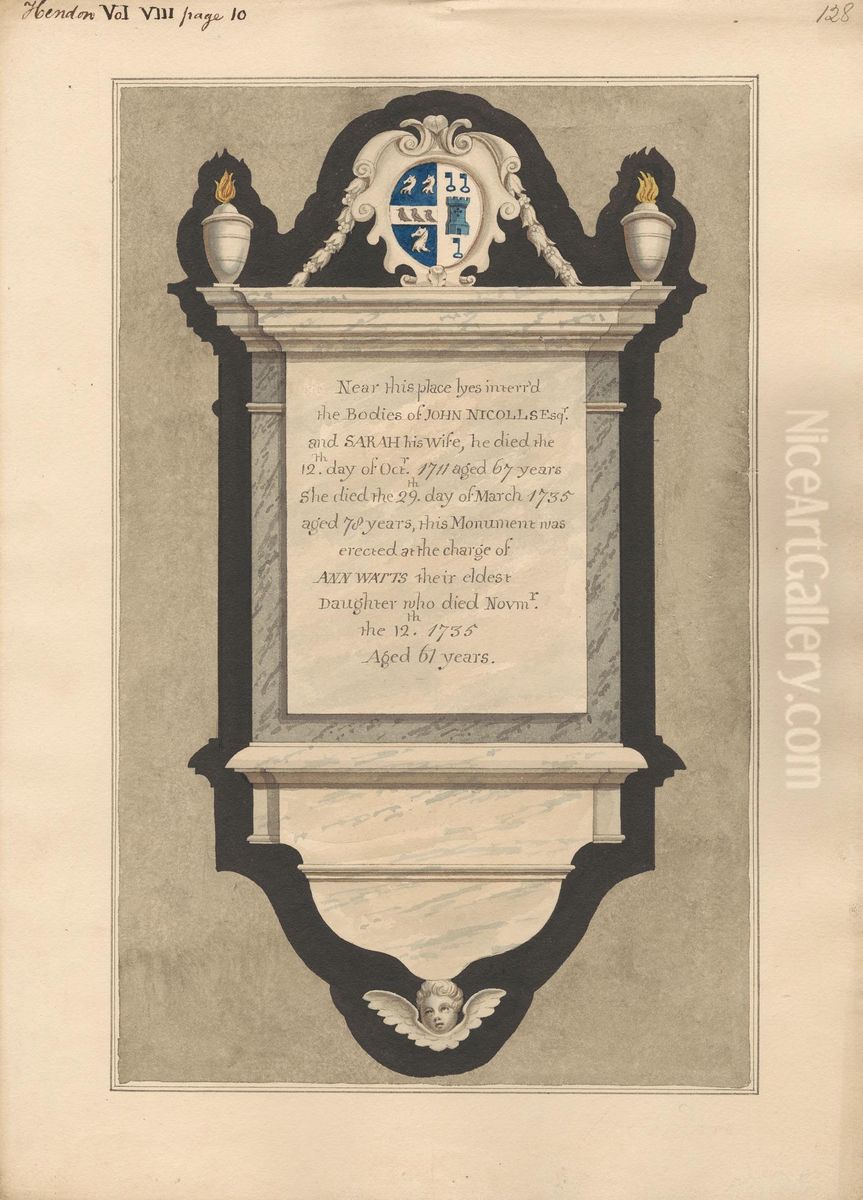 Hendon Vol VIII page 10
128
Near this place lyes interr'd
the Bodies of JOHN NICOLLS Esqr.
and SARAH his Wife, he died the
12th. day of Octr. 1711 aged 67 years
She died the 29th. day of March 1735
aged 78 years, this Monument was
erected at the charge of
ANN WATTS their eldest
Daughter who died Novmr.
the 12th. 1735
Aged 61 years.
NiceArtGallery.com